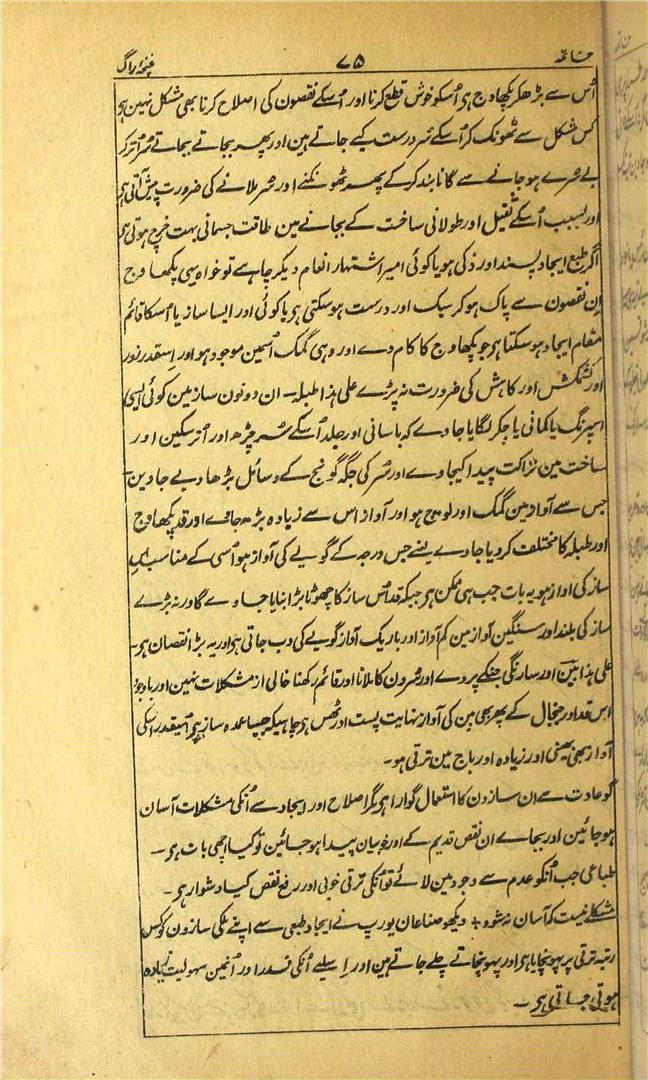 خاتمہ ۷۵ غنچۂ راگ
اُس سے بڑھکر پکھاوج ہی اُسکو خوش قطع کرنا اور اُسکے نقصون کی اصلاح کرنا بھی مشکل نہین ہی
کس مشکل سے ٹھونک کر اُسکے سُر درست کیے جاتے ہین اور پھر بجاتے بجاتے سُر اُتر کر
بے سُرے ہو جانے سے گانا بند کر کے پھر ٹھونکنے اور سُر ملانے کی ضرورت پیش آتی ہی
اور بسبب اُسکے ثقیل اور طولانی ساخت کے بجانے مین طاقت جسمانی بہت خرچ ہوتی ہی
اگر طبع ایجاد پسند اور ذکی ہو یا کوئی امیر اشتہار انعام دیکر چاہے تو خواہ یہی پکھاوج
ان نقصون سے پاک ہو کر سبک اور درست ہو سکتی ہی یا کوئی اور ایسا ساز یا اُسکا قائم
مقام ایجاد ہو سکتا ہی جو پکھاوج کا کام دے اور وہی گمک اُسمین موجود ہو اور اِسقدر زور
اور کشمکش اور کاہش کی ضرورت نہ پڑے علیٰ ہذا طبلہ۔ ان دونون ساز مین کوئی ایسی
اسپرنگ یا کمانی یا چکر لگایا جاوے کہ باسانی اور جلد اُسکے سُر چڑھ اور اُتر سکین اور
ساخت مین نزاکت پیدا کیجاوے اور سُر کی جگہ گونج کے وسائل بڑھا دیے جاوین۔
جس سے آواز مین گمک اور لوچ ہو اور آواز اس سے زیادہ بڑھ جاوے اور قد پکھاوج
اور طبلہ کا مختلف کر دیا جاوے یعنے جس درجہ کے گویے کی آواز ہو اُسی کے مناسب
ساز کی آواز ہو یہ بات جب ہی ممکن ہی جبکہ قد اُس ساز کا چھوٹا بڑا بنایا جاوے گا ورنہ بڑے
ساز کی بلند اور سنگین آواز مین کم آواز اور باریک آواز گویے کی دب جاتی ہی اور یہ بڑا نقصان ہی۔
علیٰ ہذا بین اور سارنگی جنکے پردے اور سُرون کا ملانا اور قائم رکھنا خالی از مشکلات نہین اور باوجود
اس قدر اور جنجال کے پھر بھی بین کی آواز نہایت پست اور ٹھس ہی چاہیے کہ جیسا عمدہ ساز ہی اُسیقدر اُسکی
آواز بھی میٹھی اور زیادہ اور باج مین ترقی ہو۔
گو عادت سے ان سازون کا استعمال گوارا ہی مگر اصلاح اور ایجاد سے اُنکی مشکلات آسان
ہو جائین اور بجاے ان نقص قدیم کے اور خوبیان پیدا ہو جائین تو کیا اچھی بات ہی۔
طباعی جب اُنکو عدم سے وجود مین لائے تو اُنکی ترقی خوبی اور رفع نقص کیا دشوار ہی۔
مشکلے نیست کہ آسان نہ شود + دیکھو صناعان یورپ نے ایجاد طبعی سے اپنے ملکی سازون کو کس
رتبہ ترقی پر پہونچایا ہی اور پہونچاتے چلے جاتے ہین اور اِسلیے اُنکی قدر اور اُنمین سہولیت زیادہ
ہوتی جاتی ہی۔